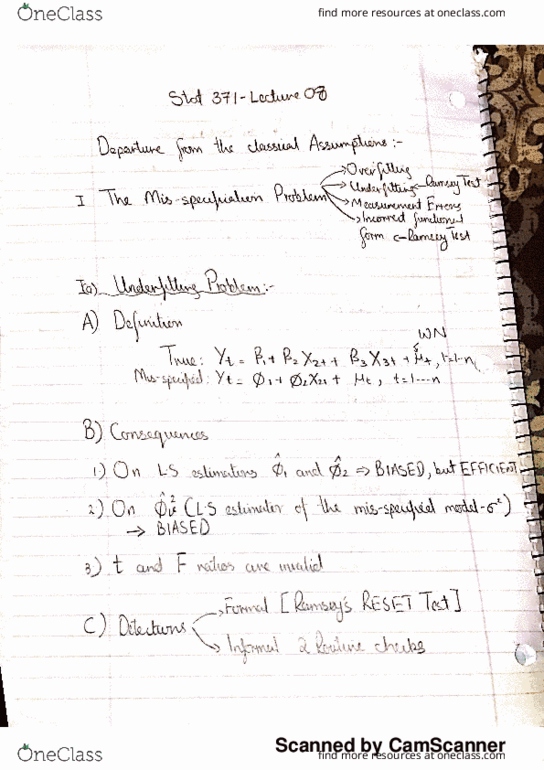 OneClass
find more resources at oneclass.com
Stat 371-Lecture 08
Departure from the classical Assumptions:-
I The Mis-specification Problem
→ Overfitting
→ Underfitting ← Ramsey Test
→ Measurement Errors
→ Incorrect functional
form ← Ramsey Test
Ia) Underfitting Problem:-
A) Definition
WN
True: Yt = β1 + β2 X2t + β3 X3t + μt, t=1-n
Mis-specified: Yt = Ø1 + Ø2X2t + μt, t=1---n
B) Consequences
1) On LS estimators Ø̂1 and Ø̂2 ⇒ BIASED, but EFFICIENT
2) On (LS estimator of the mis-specified model-σ²)
→ BIASED
3) t and F ratios are invalid
C) Detections
→ Formal [Ramsey's RESET Test]
→ Informal 2 Routine checks
Scanned by CamScanner
OneClass
find more resources at oneclass.com